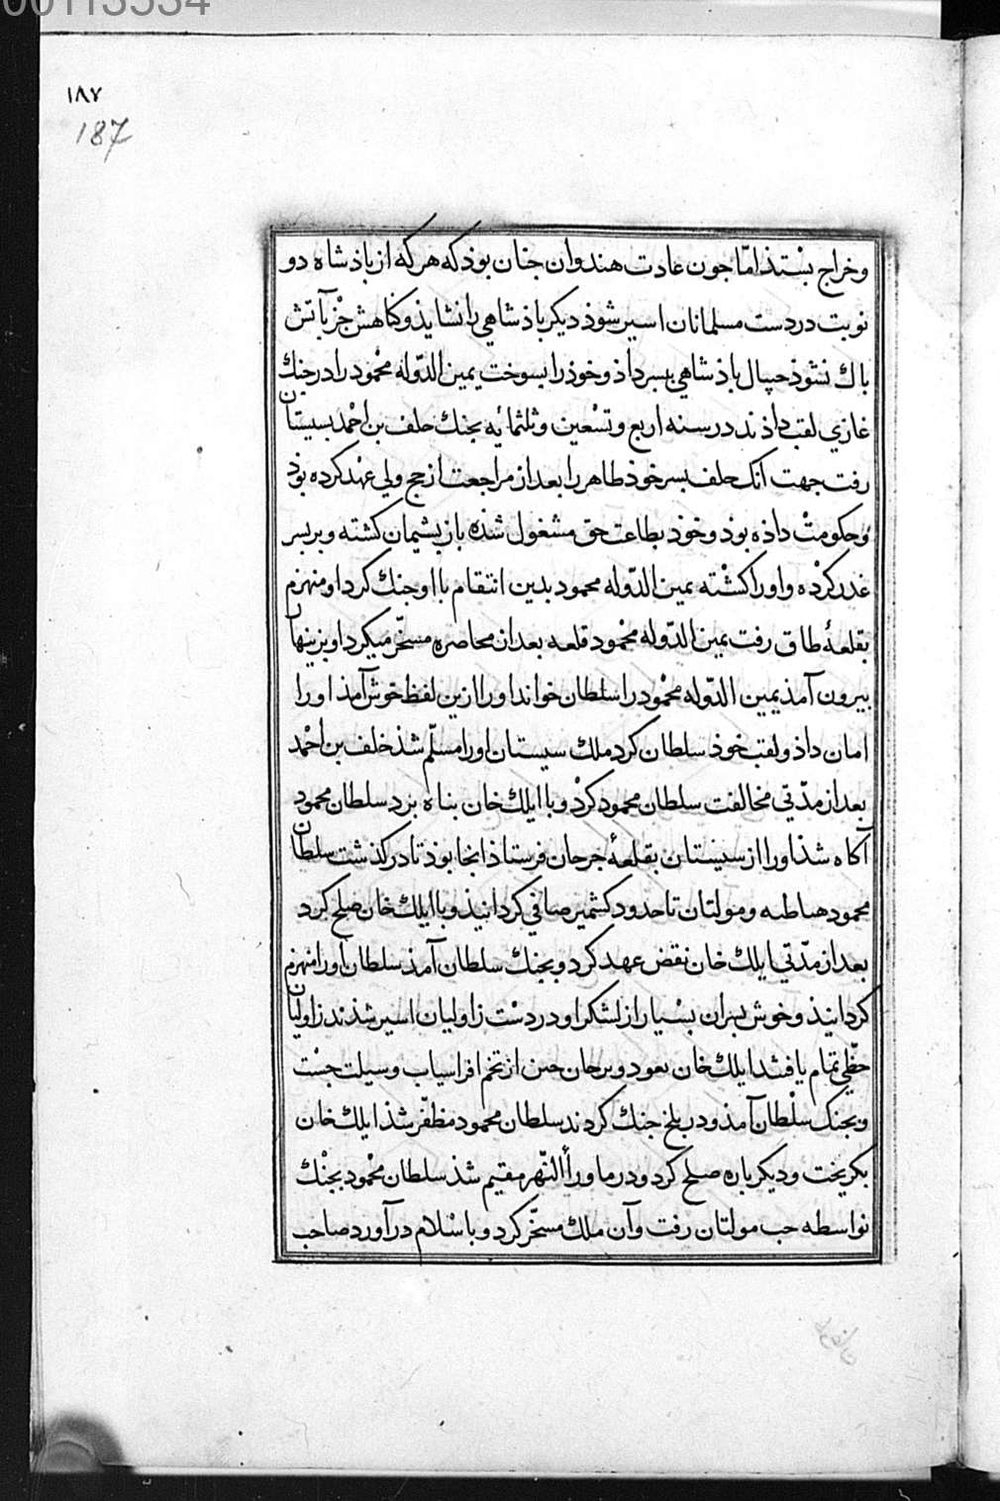 00113534
۱۸۷
187
و خراج بستذ امّا جون عادت هندوان جنان بوذ که هر که از باذشاه دو
نوبت در دست مسلمانان اسیر شوذ دیکر باذشاهی را نشایذ و کناهش جز بآتش
باك نشوذ جیپال باذشاهی ببسر داذ و خوذ را بسوخت یمین الدّوله محمود را در جنك
غازی لقب داذند در سنه اربع و تسعین و ثلثمائه بجنك خلف بن احمد بسیستان
رفت جهت آنك خلف بسر خوذ طاهر را بعد از مراجعت از حج ولی عهد کرده بوذ
و حکومت داذه بوذ و خوذ بطاعت حق مشغول شذه باز بشیمان کشته و بر بسر
غدر کرده و او را کشته یمین الدّوله محمود بدین انتقام با او جنك کرد او منهزم
بقلعهٔ طاق رفت یمین الدّوله محمود قلعه بعد از محاصره مسخّر میکرد او بزینهار
بیرون آمذ یمین الدّوله محمود را سلطان خواند او را ازین لفظ خوش آمذ او را
امان داذ و لقب خوذ سلطان کرد ملك سیستان او را مسلّم شذ خلف بن احمد
بعد از مدّتی مخالفت سلطان محمود کرد و با ایلك خان بناه برد سلطان محمود
آکاه شذ او را از سیستان بقلعهٔ جرجان فرستاذ آنجا بوذ تا در کذشت سلطان
محمود هباطیه و مولتان تا حدود کشمیر صافی کردانیذ و با ایلك خان صلح کرد
بعد از مدّتی ایلك خان نقض عهد کرد و بجنك سلطان آمذ سلطان او را منهزم
کردانیذ و خوش بسران بسیار از لشکر او در دست زاولیان اسیر شذند زاولیان
حظّی تمام یافتند ایلك خان بغود و برخان ختن از تخم افراسیاب وسیلت جست
و بجنك سلطان آمذ و در بلخ جنك کردند سلطان محمود مظفّر شذ ایلك خان
بکریخت و دیکر باره صلح کرد و در ماورأ النّهر مقیم شذ سلطان محمود بجنك
نواسطه حب مولتان رفت و آن ملك مسخّر کرد و باسلام در آورد صاحب